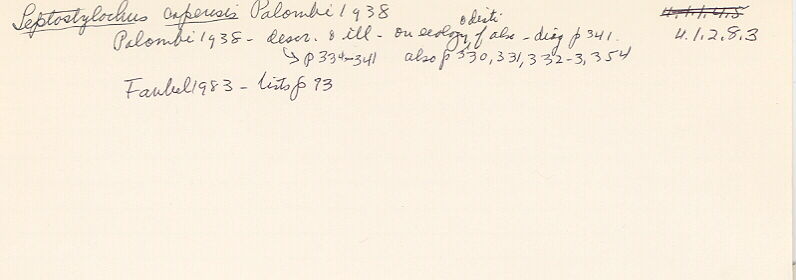 Leptostylochus capensis Palombi 1938
4.1.1.4.5
& disti.
Palombi 1938 - descr. & ill - on ecology of also - diag p 341.
4.1.2.8.3
↳ p 334-341 also p 330, 331, 332-3, 354
Faubel 1983 - lists p 73